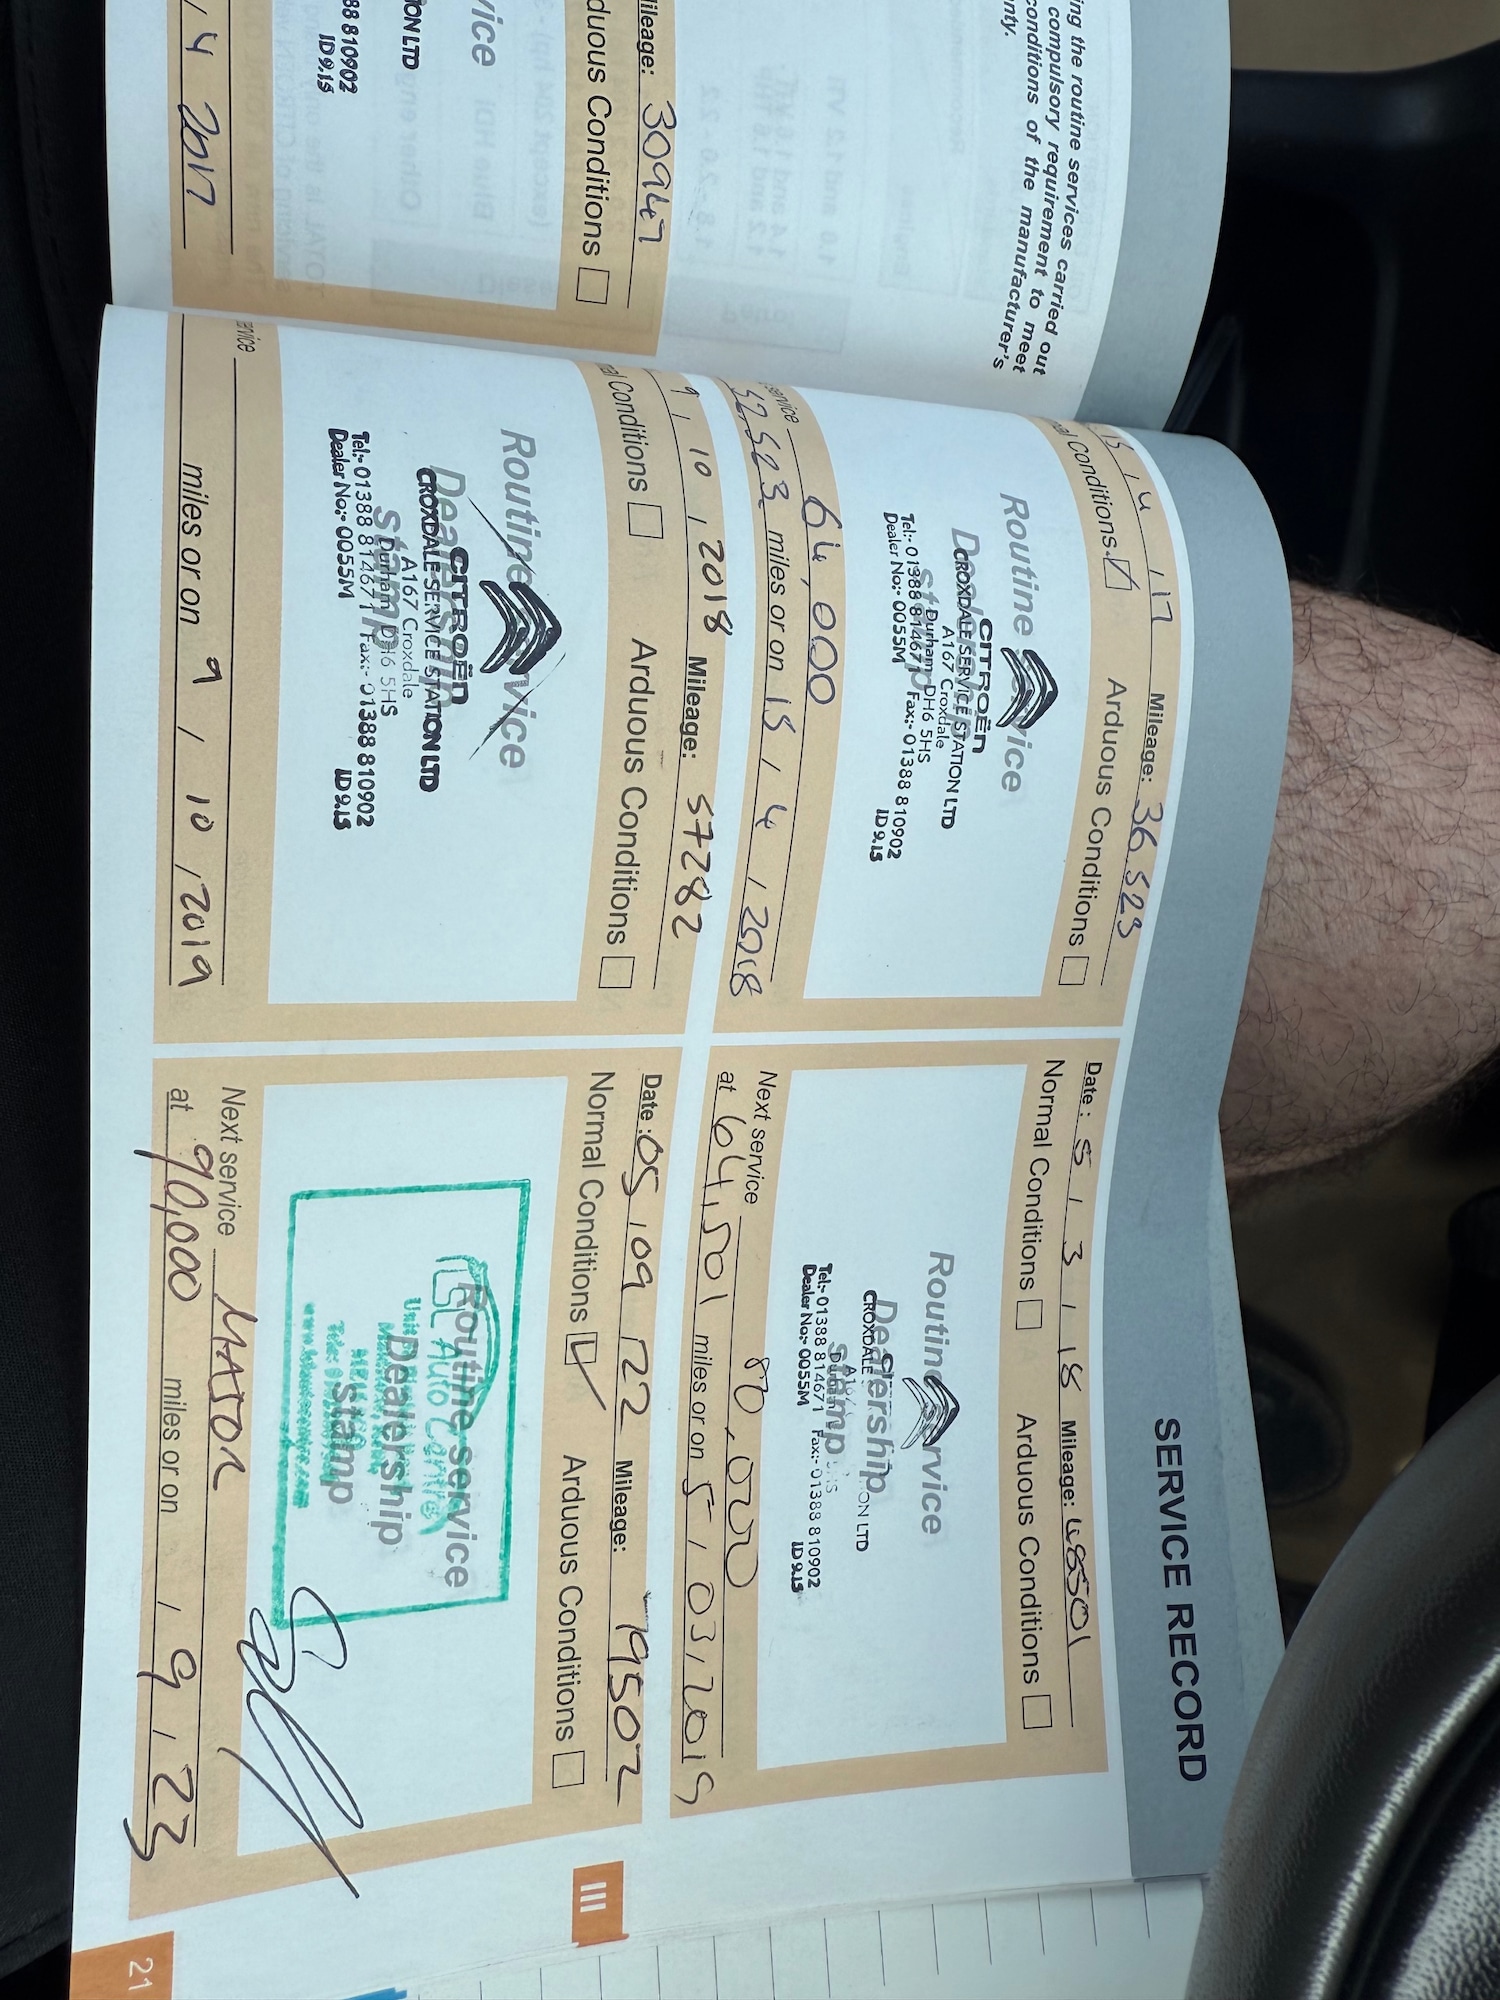 ing the routine services carried out
compulsory requirement to meet
conditions of the manufacturer's
nty.
Mileage: 30947
duous Conditions
vice
ION LTD
88 810902
ID 9.15
4 2017
SERVICE RECORD
15, 4, 17 Mileage: 36523
al Conditions Arduous Conditions
Routine Service
Dealership
Stamp
CITROËN
CROXDALE SERVICE STATION LTD
A167 Croxdale
Durham DH6 5HS
Tel:- 01388 814671 Fax:- 01388 810902
Dealer No:- 0055M ID 9.15
service 64,000
52,523 miles or on 15, 4, 2018
Date: 5, 3, 18 Mileage: 48501
Normal Conditions Arduous Conditions
Routine Service
Dealership
Stamp
CROXDALE ON LTD
A16
Tel:- 01388 814671 Fax:- 01388 810902
Dealer No:- 0055M ID 9.15
Next service 80,000
at 64,501 miles or on 5, 03, 2019
9, 10, 2018 Mileage: 57282
al Conditions Arduous Conditions
Routine Service
Dealership
Stamp
CITROËN
CROXDALE SERVICE STATION LTD
A167 Croxdale
Durham DH6 5HS
Tel:- 01388 814671 Fax:- 01388 810902
Dealer No:- 0055M ID 9.15
ervice
miles or on 9, 10, 2019
Date: 05, 09, 22 Mileage: 79502
Normal Conditions Arduous Conditions
Routine service
Dealership
Stamp
Auto Centre
Next service MAJOR
at 90,000 miles or on , 9, 23
III
21